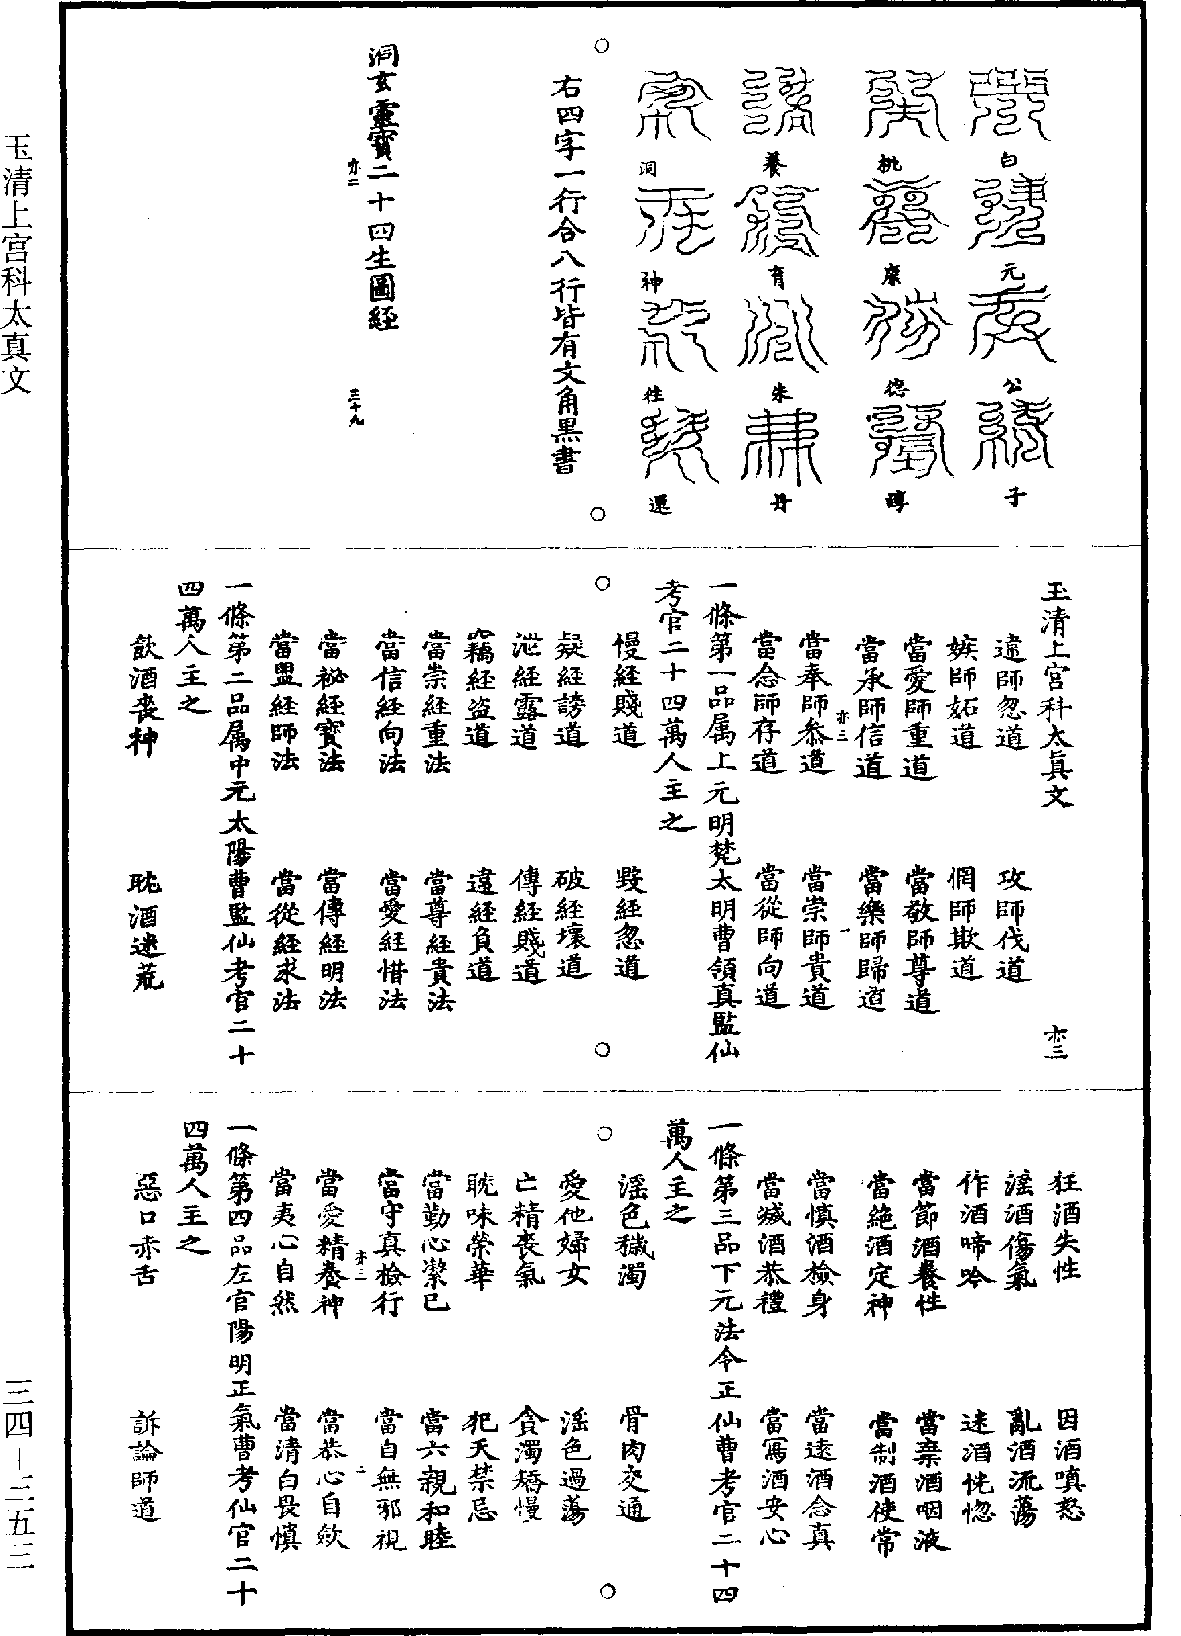 白元公子
桃康德𨹁
養育朱丹
洞神往還
右四字一行合八行皆有文角黑書
洞玄靈寶二十四生圖經
亦二
三十九
玉清上宮科太真文
亦三
違師忽道 攻師伐道
嫉師妬道 惘師欺道
當愛師重道 當敬師尊道
當承師信道 當樂師歸道
亦三 一
當奉師恭道 當崇師貴道
當念師存道 當從師向道
一條第一品属上元明梵太明曹領真監仙
考官二十四萬人主之
慢經賤道 毀經忽道
疑經謗道 破經壞道
泄經露道 傳經賤道
竊經盗道 違經負道
當崇經重法 當尊經貴法
當信經向法 當愛經惜法
當祕經寶法 當傳經明法
當盟經師法 當從經求法
一條第二品属中元太陽曹監仙考官二十
四萬人主之
飲酒喪神 耽酒迷荒
狂酒失性 因酒嗔怒
滛酒傷氣 亂酒流蕩
作酒啼吟 迷酒恍惚
當節酒養性 當棄酒咽液
當絶酒定神 當制酒使常
當慎酒檢身 當遠酒念真
當㓕酒恭禮 當寫酒安心
一條第三品下元法令正仙曹考官二十四
萬人主之
滛色穢濁 骨肉交通
愛他婦女 滛色過蕩
亡精喪氣 貪濁矯慢
耽味榮華 犯天禁忌
當勤心潔已 當六親和睦
當守真檢行 當自無邪視
亦三 二
當愛精養神 當恭心自斂
當夷心自然 當清白畏慎
一條第四品左官陽明正氣曹考仙官二十
四萬人主之
惡口赤舌 訴論師道
玉清上宫科太真文
三四－三五三